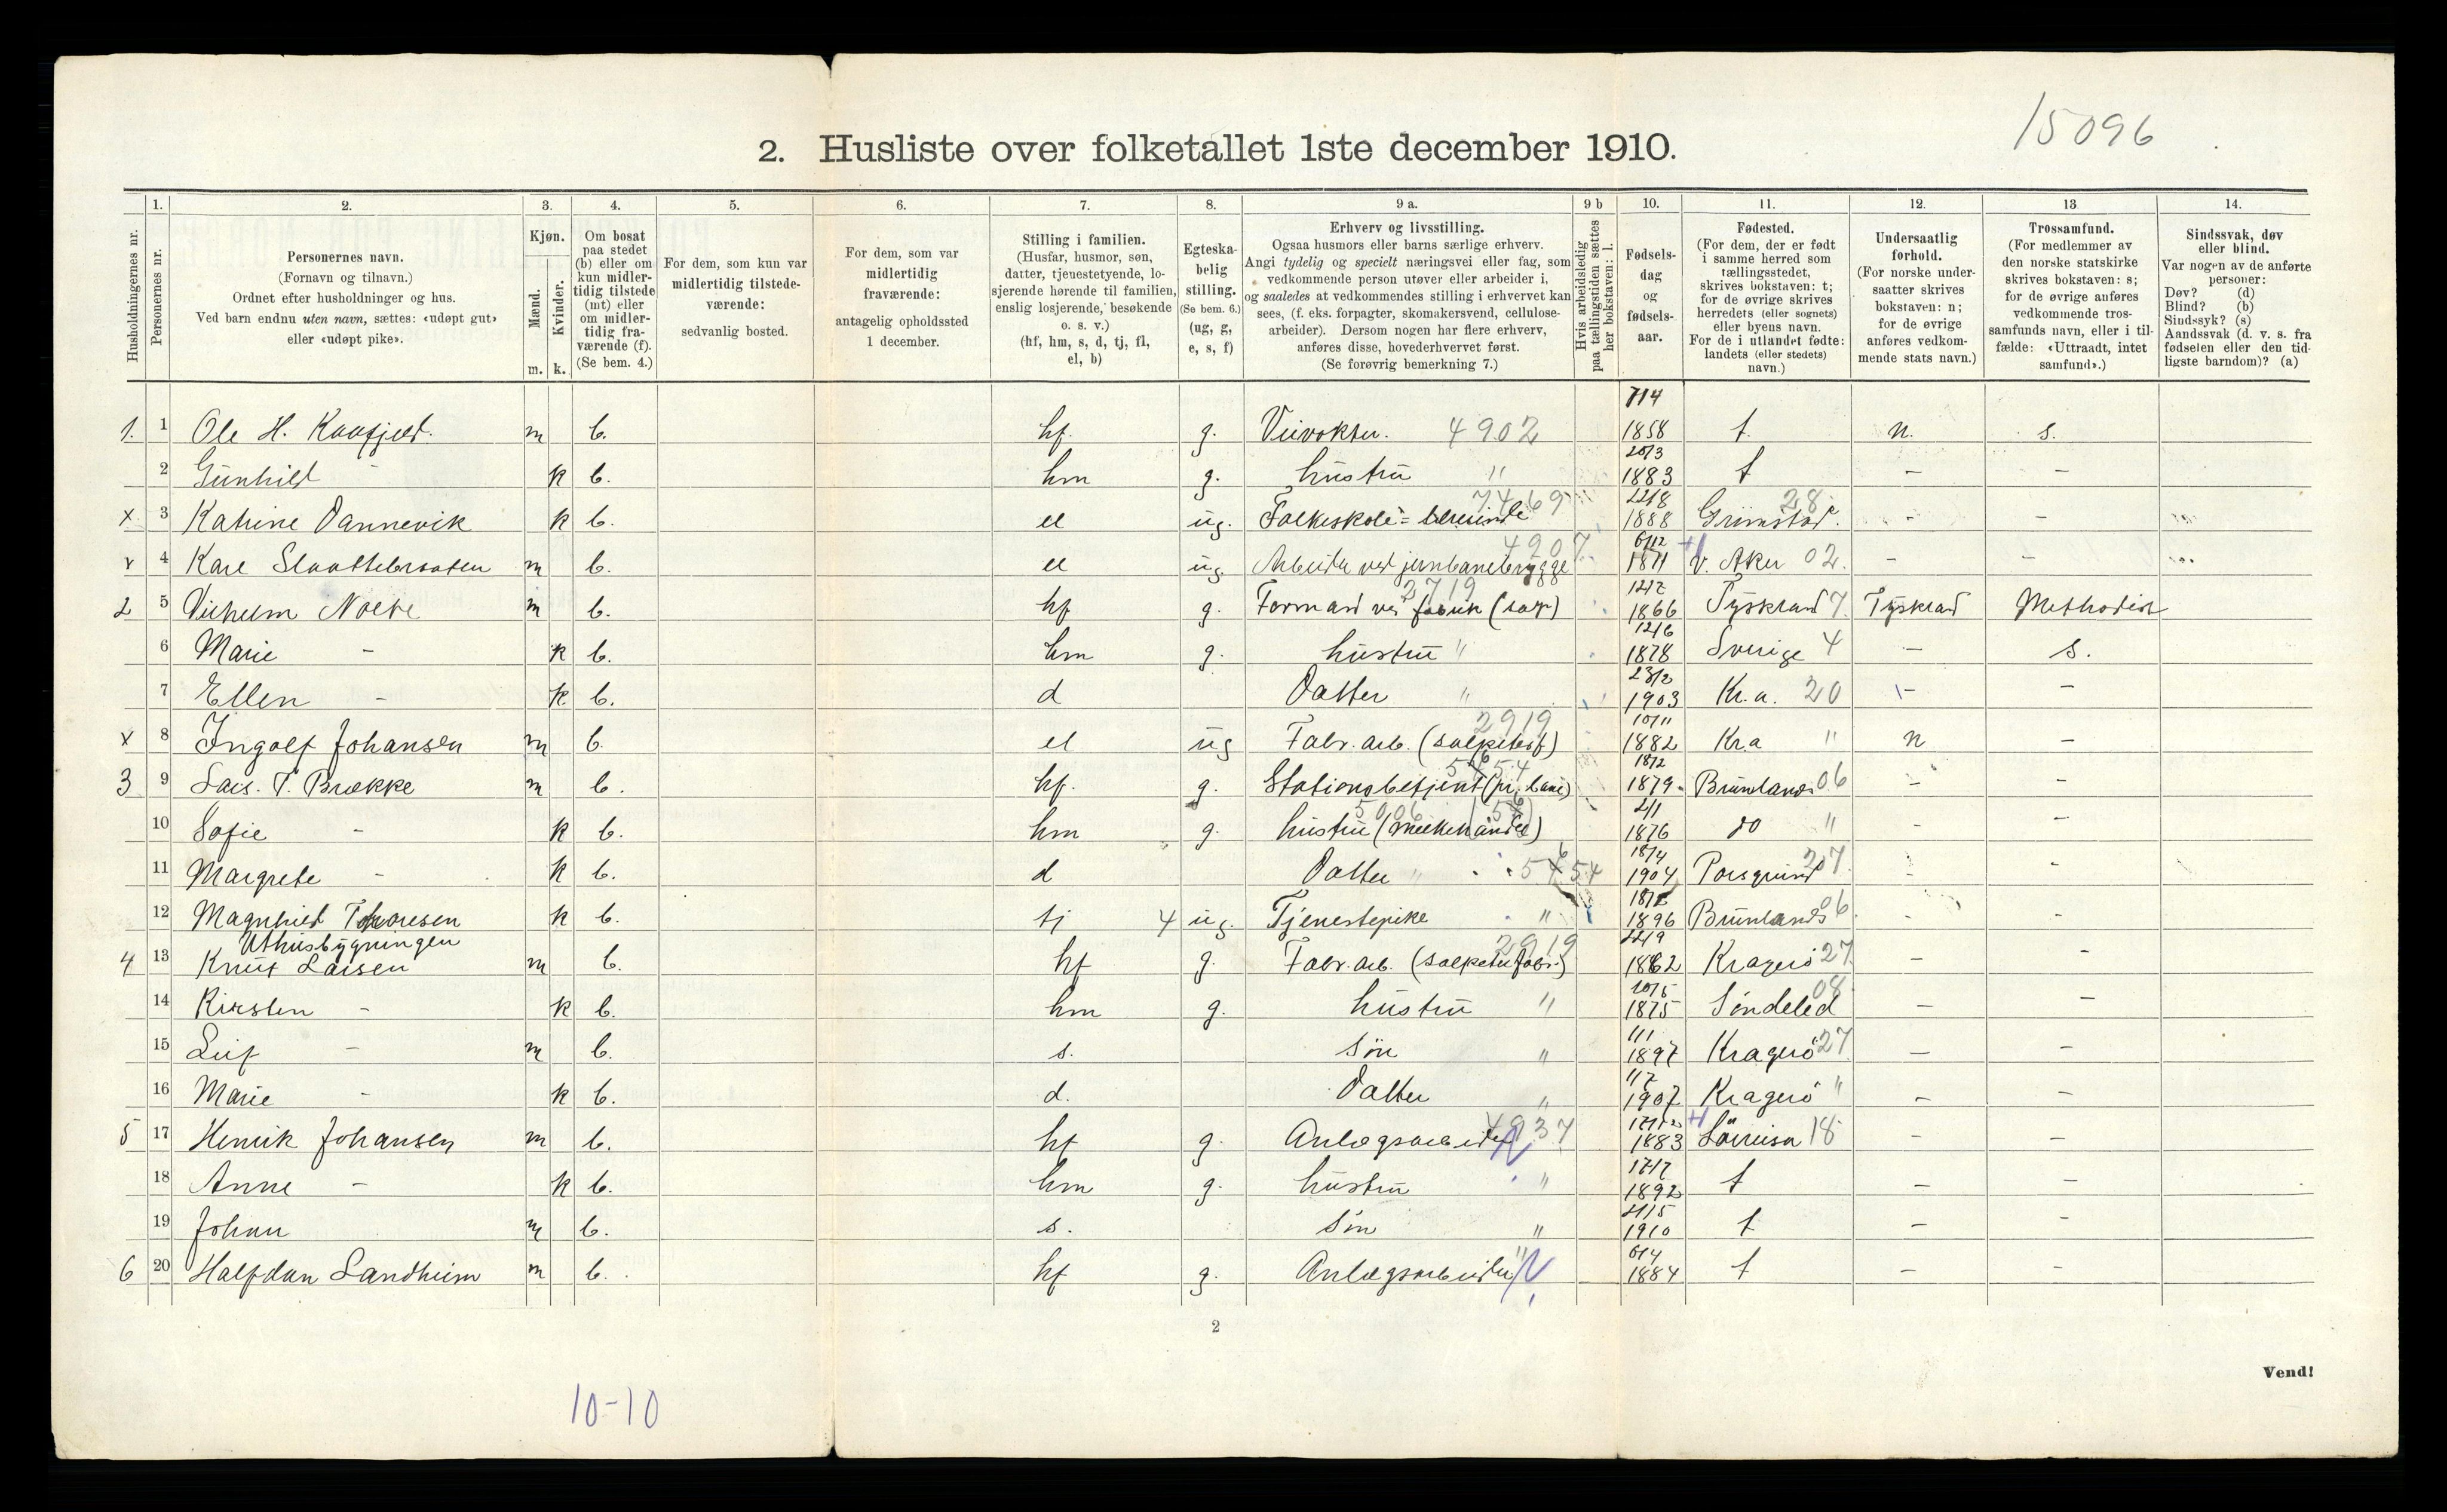 15096
2. Husliste over folketallet 1ste december 1910.
1. 2. 3. 4. 5. 6. 7. 8. 9 a. 9 b 10. 11. 12. 13 14.
Husholdningernes nr.
Personernes nr.
Personernes navn.
(Fornavn og tilnavn.)
Ordnet efter husholdninger og hus.
Ved barn endnu uten navn, sættes: «udøpt gut»
eller «udøpt pike».
Kjøn.
Mænd.
Kvinder.
m. k.
Om bosat
paa stedet
(b) eller om
kun midler-
tidig tilstede
(mt) eller
om midler-
tidig fra-
værende (f).
(Se bem. 4.)
For dem, som kun var
midlertidig tilstede-
værende:
sedvanlig bosted.
For dem, som var
midlertidig
fraværende:
antagelig opholdssted
1 december.
Stilling i familien.
(Husfar, husmor, søn,
datter, tjenestetyende, lo-
sjerende hørende til familien,
enslig losjerende, besøkende
o. s. v.)
(hf, hm, s, d, tj, fl,
el, b)
Egteska-
belig
stilling.
(Se bem. 6.)
(ug, g,
e, s, f)
Erhverv og livsstilling.
Ogsaa husmors eller barns særlige erhverv.
Angi tydelig og specielt næringsvei eller fag, som
vedkommende person utøver eller arbeider i,
og saaledes at vedkommendes stilling i erhvervet kan
sees, (f. eks. forpagter, skomakersvend, cellulose-
arbeider). Dersom nogen har flere erhverv,
anføres disse, hovederhvervet først.
(Se forøvrig bemerkning 7.)
Hvis arbeidsledig
paa tællingstiden sættes
her bokstaven: l.
Fødsels-
dag
og
fødsels-
aar.
Fødested.
(For dem, der er født
i samme herred som
tællingsstedet,
skrives bokstaven: t;
for de øvrige skrives
herredets (eller sognets)
eller byens navn.
For de i utlandet fødte:
landets (eller stedets)
navn.)
Undersaatlig
forhold.
(For norske under-
saatter skrives
bokstaven: n;
for de øvrige
anføres vedkom-
mende stats navn.)
Trossamfund.
(For medlemmer av
den norske statskirke
skrives bokstaven: s;
for de øvrige anføres
vedkommende tros-
samfunds navn, eller i til-
fælde: «Uttraadt, intet
samfund».)
Sindssvak, døv
eller blind.
Var nogen av de anførte
personer:
Døv? (d)
Blind? (b)
Sindssyk? (s)
Aandssvak (d. v. s. fra
fødselen eller den tid-
ligste barndom)? (a)
1. 1 Ole H. Kaafjeld. m b. hf. g. Veivokter. 4902 7/4 1858 t. n. s.
2 Gunhild - k b. hm g. hustru " 20/3 1883 t - -
x 3 Katrine Dannevik k b. el ug. Folkeskole= lærerinde 7469 22/8 1888 Grimstad. 28 - -
v 4 Karl Slaattebraaten m b. el ug. Arbeider ved jernbanebrygge 4207 6/12 1871 V. Aker 02. - -
2 5 Vilhelm Nolte m b. hf g. Formand ved fabrik (salp) 2719 12/7 1866 Tyskland 7. Tyskland Methodist
6 Marie - k b. hm g. hustru " 12/6 1878 Sverige 4 - s.
7 Ellen - k b. d Datter " 23/2 1903 Kr.a. 20 - -
x 8 Ingolf Johansen m b. el ug Fabr. arb. (salpeterf) 2919 10/11 1882 Kr.a " n -
3 9 Lars. T. Brække m b. hf. g. Stationsbetjent (pr. bane) 18/2 1879. Brunlanæs 06 - -
10 Sofie - k b. hm g. hustru (melkehandel) 2/1 1876 do " - -
11 Margrete - k b. d Datter " 18/4 1904 Porsgrund 27. - -
12 Magnhild Thoresen k b. tj 4 ug. Tjenestepike " 1896 Brunlanæs 06. - -
Uthusbygningen
4 13 Knut Larsen m b. hf g. Fabr. arb. (salpeterfabr.) 2919 22/9 1862 Kragerö 27. - -
14 Kirsten - k b. hm g. hustru " 20/5 1875 Söndeled 08. - -
15 Leif - m b. s. Sön " 1/1 1897 Kragerö 27. - -
16 Marie - k b. d. Datter " 1/7 1907 Kragerö " - -
5 17 Henrik Johansen m b. hf g. Anlægsarbeider 4937 1883 18 - -
18 Anne - k b. hm g. hustru " 17/7 1892 t - -
19 Johan m b. s. Sön " 1910 t - -
6 20 Halfdan Landheim m b. hf g. Anlægsarbeider " 6/4 1884 t - -
2
Vend!
10-10